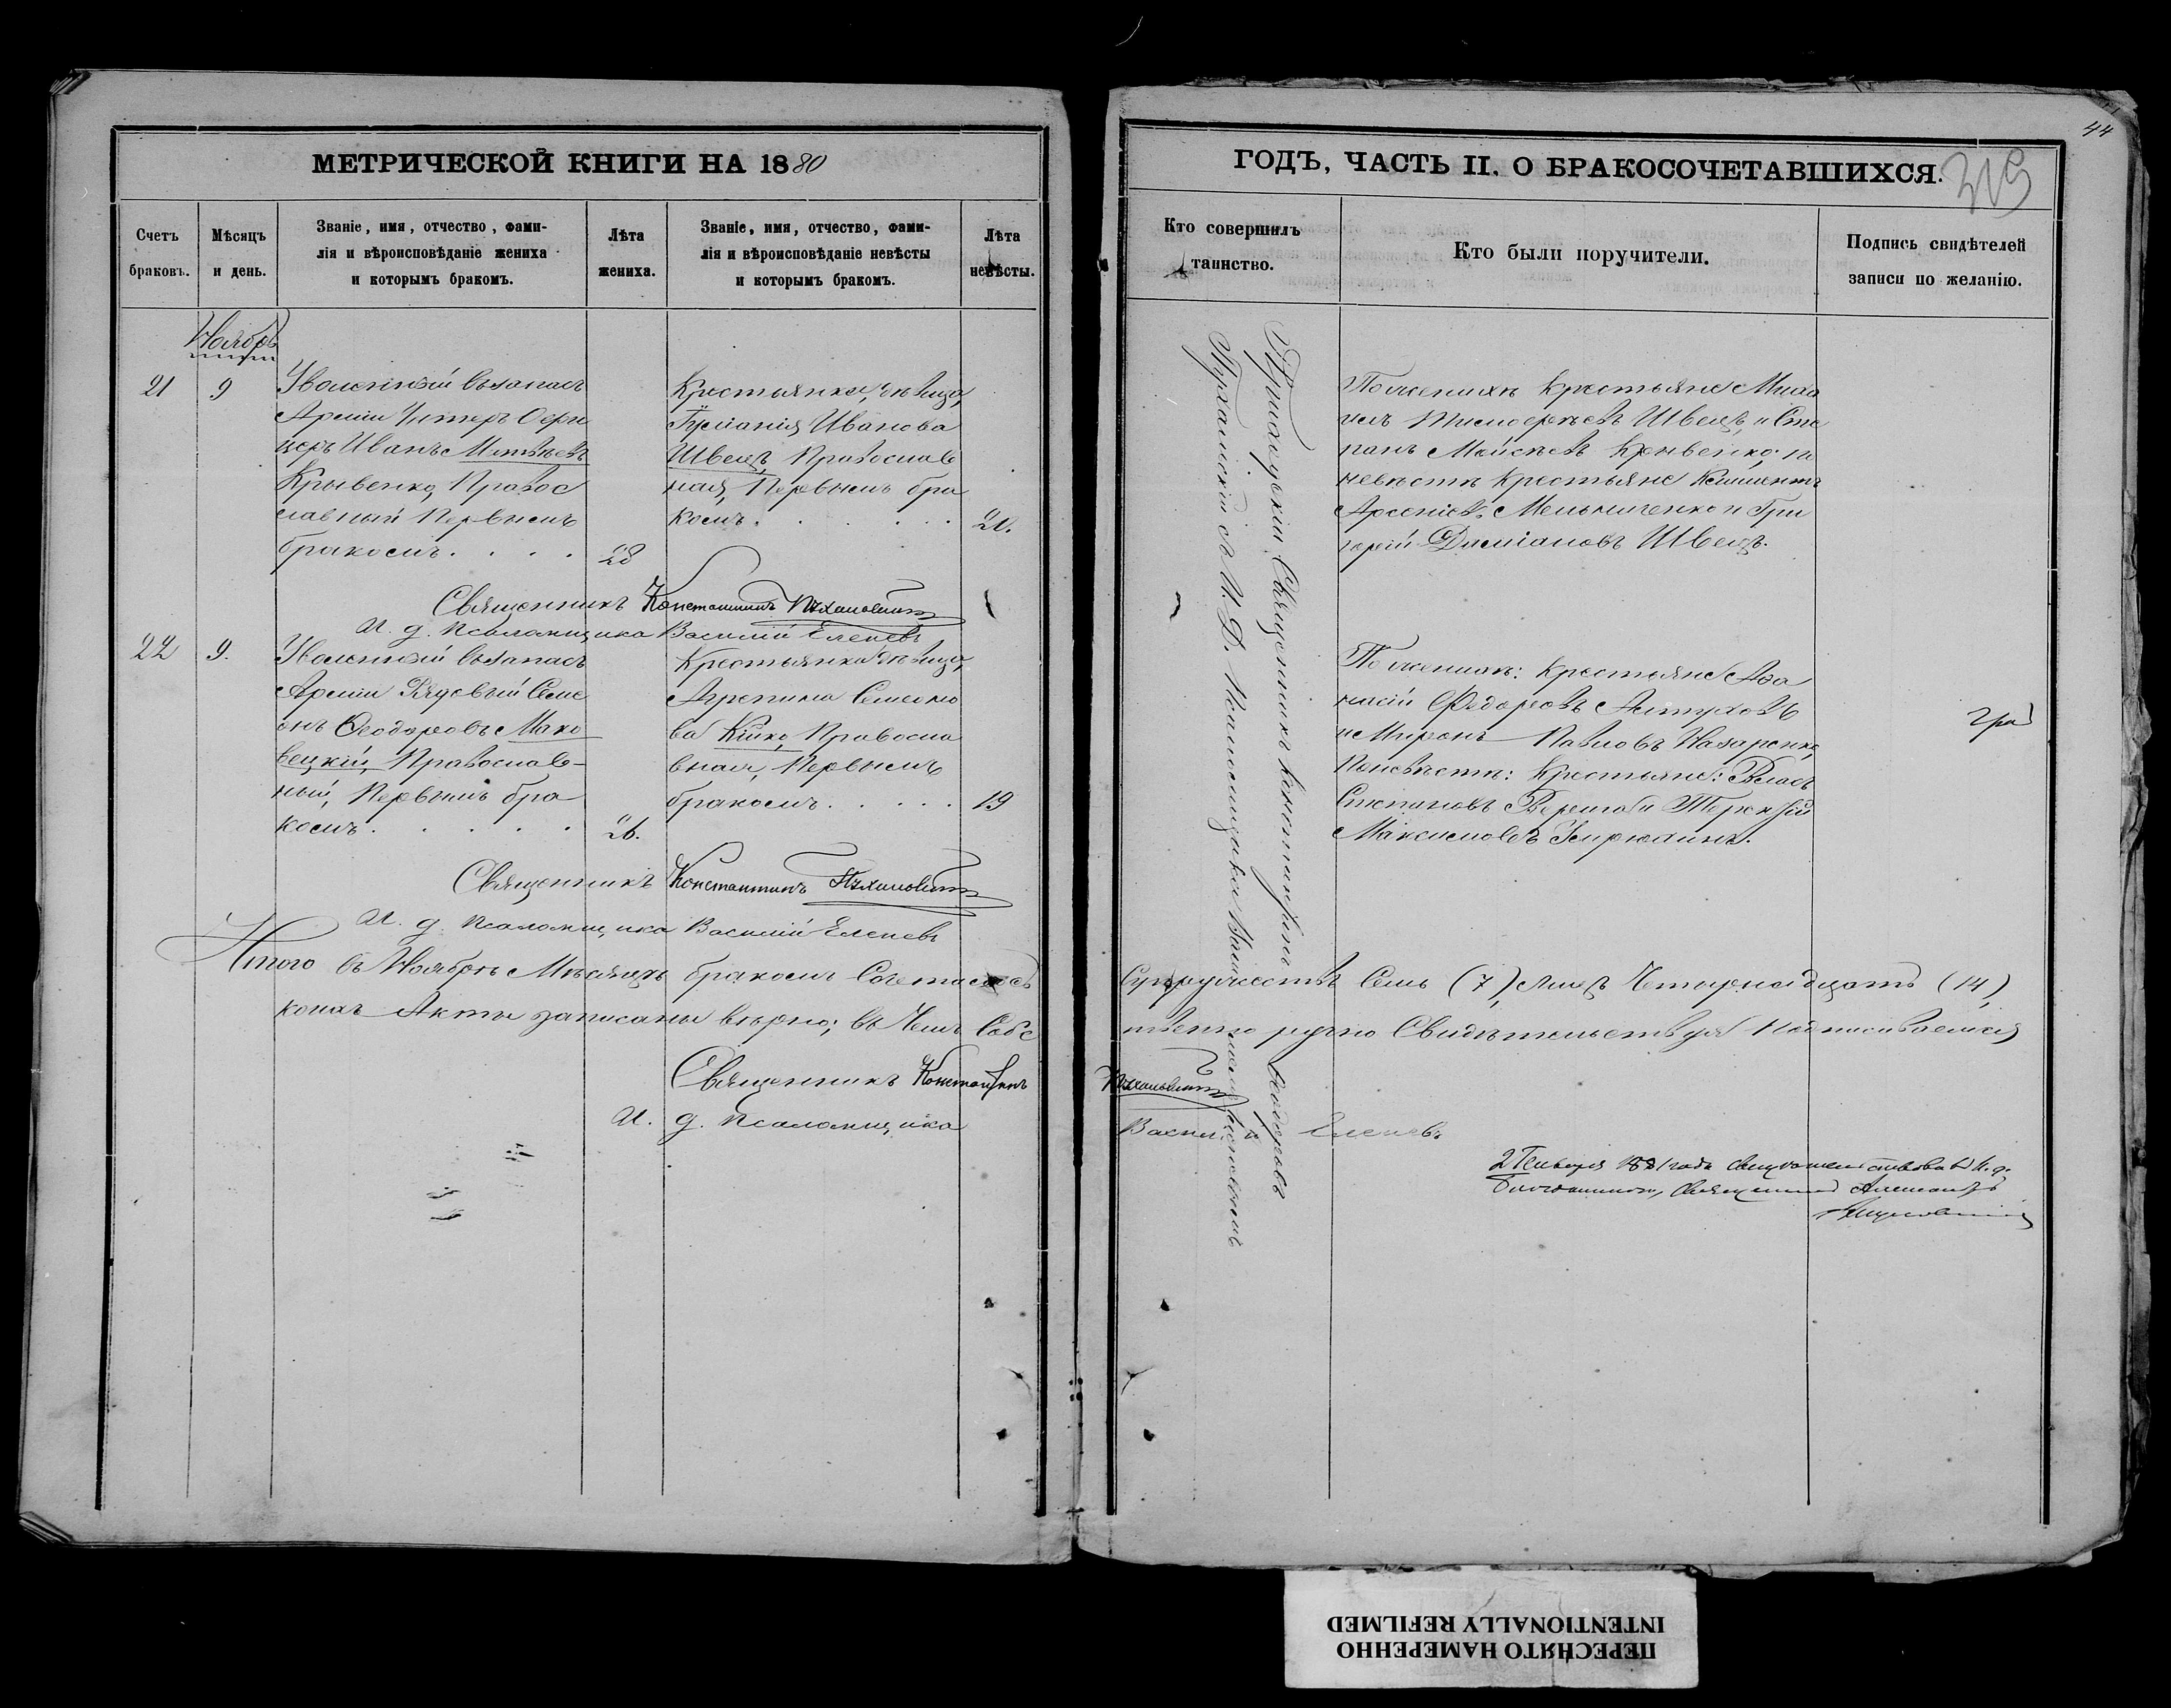 МЕТРИЧЕСКОЙ КНИГИ НА 1880
Счетъ браковъ.
Мѣсяцъ и день.
Званіе, имя, отчество, фами-
лія и вѣроисповѣданіе жениха
и которымъ бракомъ.
Лѣта жениха.
Званіе, имя, отчество, фами-
лія и вѣроисповѣданіе невѣсты
и которымъ бракомъ.
Лѣта невѣсты.
Ноябрь
21
9
Уволенный въ запасъ
Арміи Унтеръ Офи
церъ Иванъ Матвѣевъ
Крывенко, Правос
лавный Первымъ
бракомъ. . . .
28
Крестьянка, дѣвица,
Иванова
Швецъ, Православ
ная, Первымъ бра
комъ. . . . .
20.
Священникъ Константинъ
и. д. Псаломщика Василій Еленевъ
22
9.
Уволенный въ запасъ
Арміи Рядовый Семе
онъ Ѳеодоровъ Мако
вецкій, Православ-
ный, Первымъ бра
комъ. . . . . .
26.
Крестьянка дѣвица,
Агрепина Семеоно
ва Кійко, Правосла
вная, Первымъ
бракомъ. . . . .
19
Священникъ Константинъ
И. д. Псаломщика Василій Еленевъ
Итого въ Ноябрѣ Мѣсяцѣ бракомъ Сочеталось
коихъ Акты записаны вѣрно; въ чемъ Собс
Священникъ Константинъ
и. д. Псаломщика
44
ГОДЪ, ЧАСТЬ II. О БРАКОСОЧЕТАВШИХСЯ.
Кто совершилъ таинство.
Кто были поручители.
Подпись свидѣтелей
записи по желанію.
Священникъ Константинъ
И. Д. Псаломщика Василій
По женихѣ Крестьяне Миха
илъ Тимоѳеевъ Швецъ, и Сте
панъ Крывенко; по
невѣстѣ Крестьяне Климентъ
Арсеніевъ Мельниченко и Гри
горій Даміановъ Швецъ.
По женихѣ: Крестьяне Аѳа
насій Ѳедоровъ
и Миронъ Павловъ Назаренко,
По невѣстѣ: Крестьяне: Власъ
Степановъ и Терентій
Максимовъ
Супружествъ Семь (7), Лицъ Четырнадцать (14),
твенно ручно Свидѣтельствуя Подписываемся
Василій Еленевъ
2 Генваря 1881 года свидѣтельствовалъ И. д.
Благочиннаго, Священникъ Александръ
ПЕРЕСНЯТО НАМЕРЕННО
INTENTIONALLY REFILMED